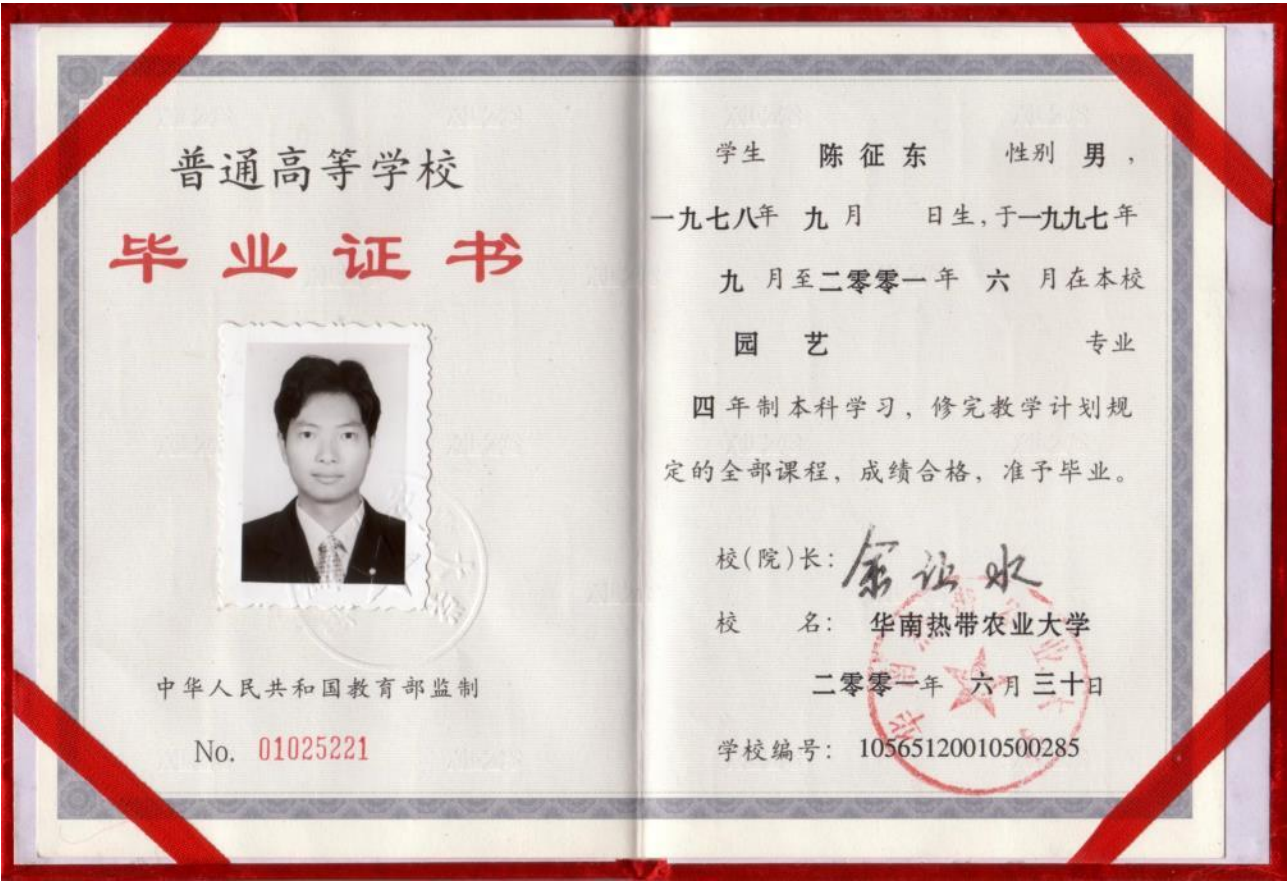 普通高等学校
毕业证书
中华人民共和国教育部监制
No. 01025221
学生 陈征东 性别 男，
一九七八年 九月 日生，于一九九七年
九 月至二零零一年 六 月在本校
园 艺 专业
四年制本科学习，修完教学计划规
定的全部课程，成绩合格，准予毕业。
校(院)长：
校 名：华南热带农业大学
二零零一年 六月三十日
学校编号：10565120010500285